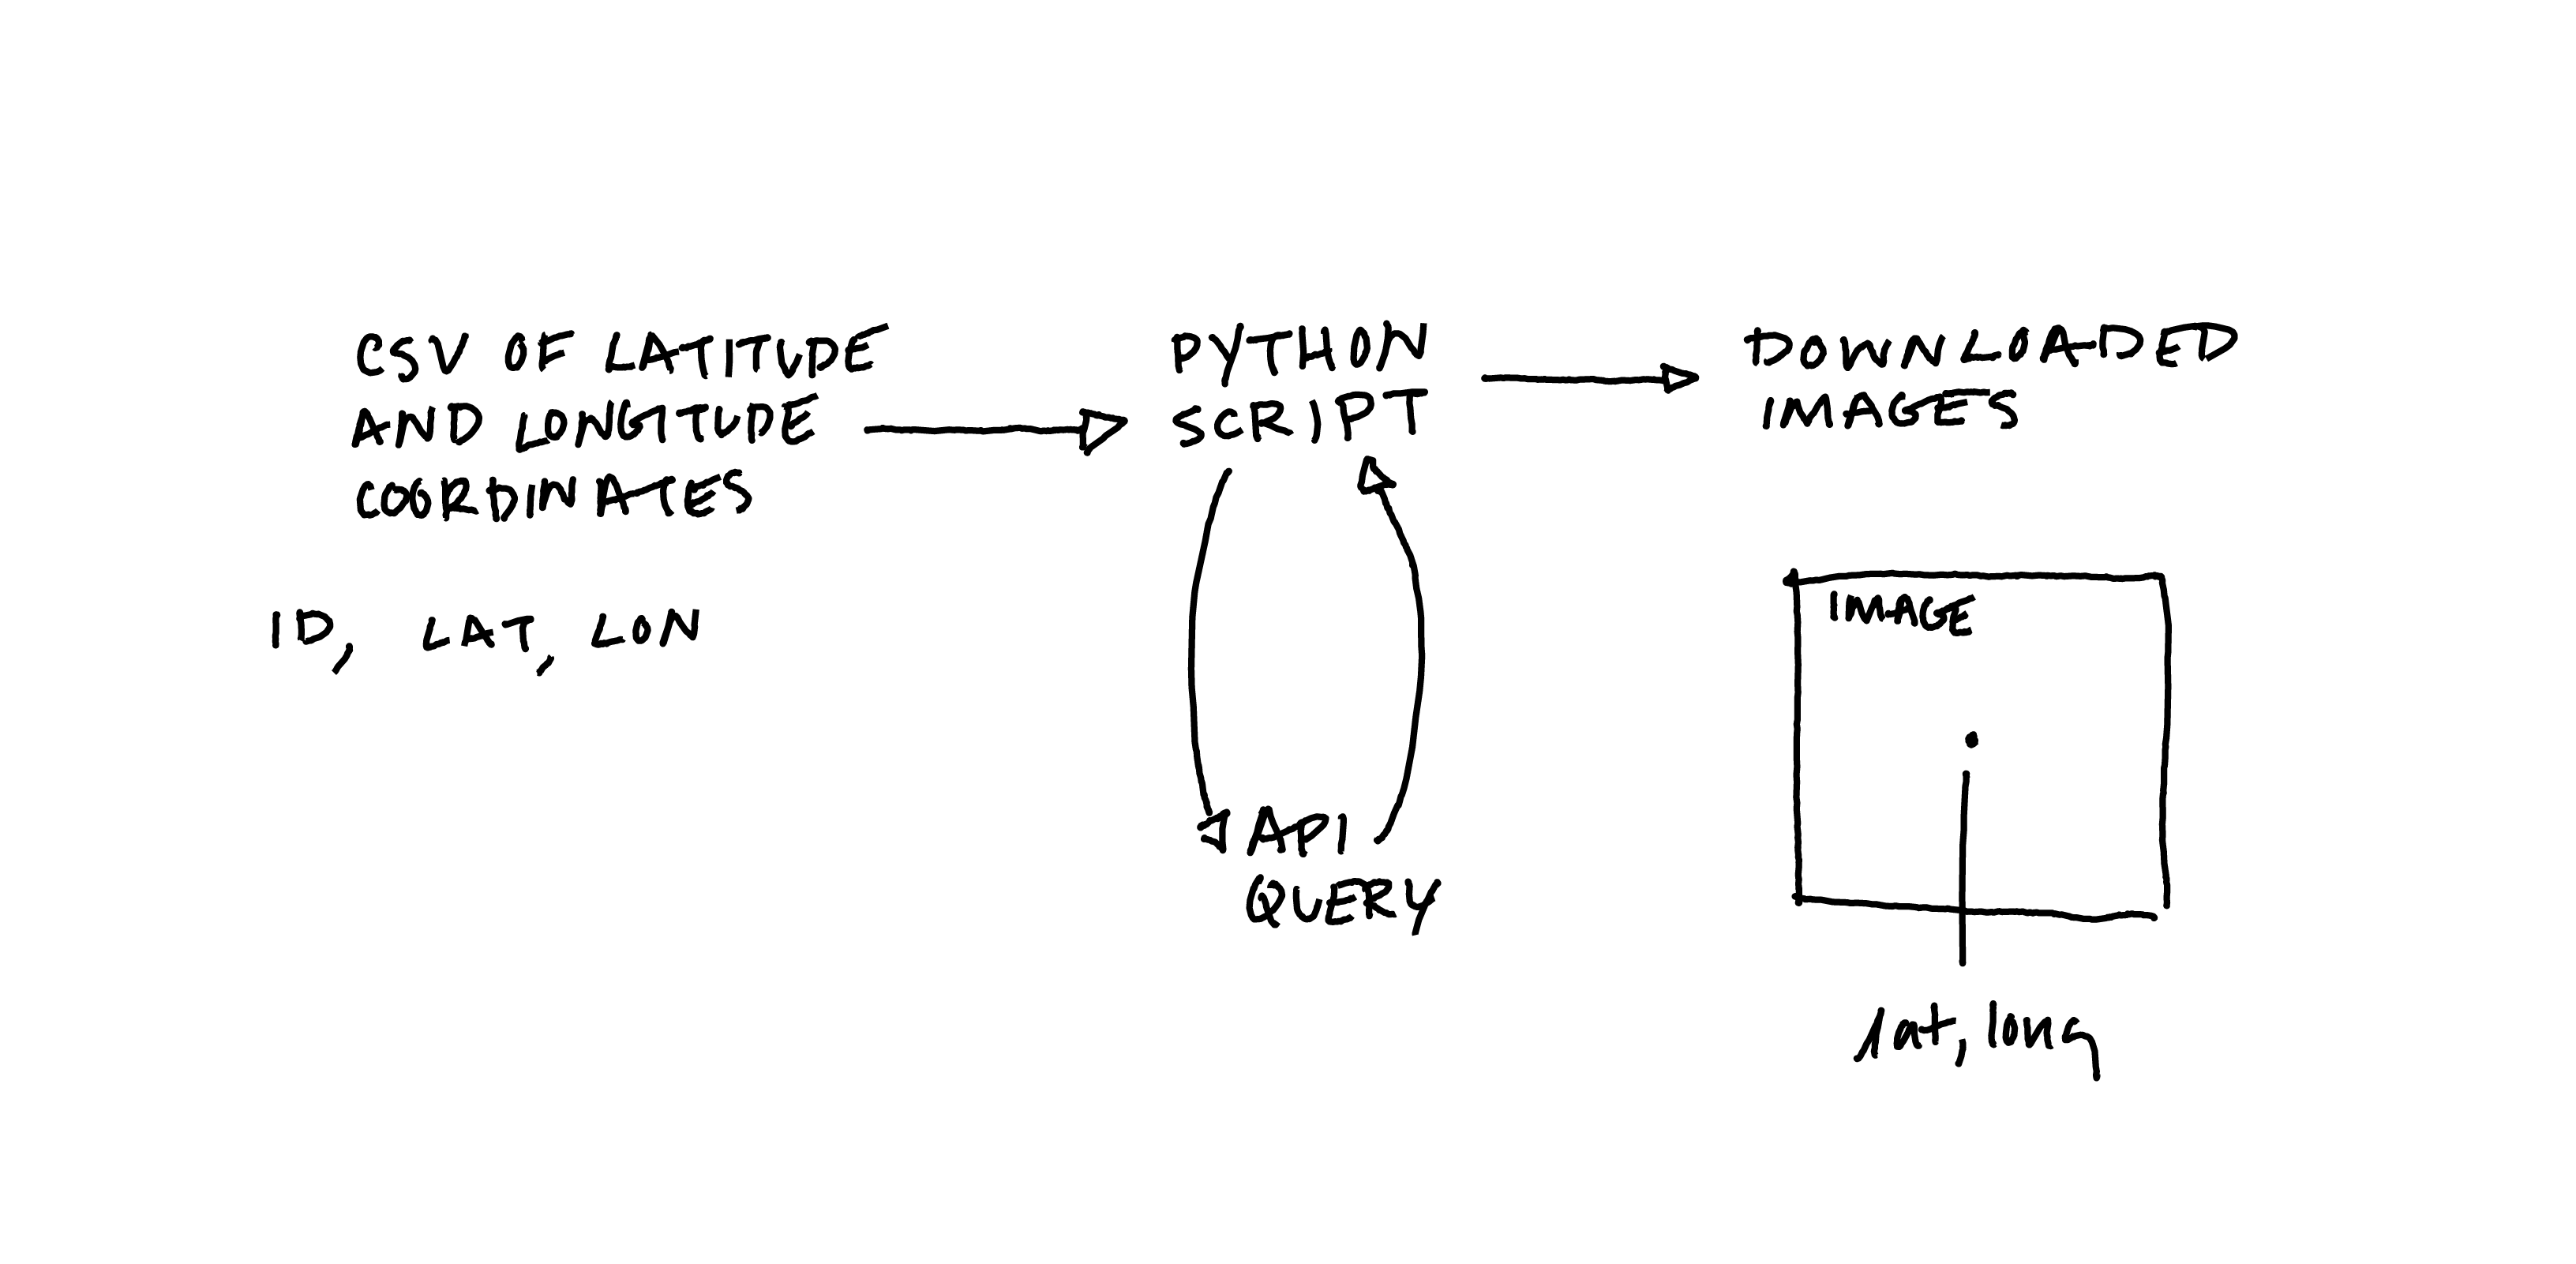 CSV OF LATITUDE
AND LONGITUDE
COORDINATES
ID, LAT, LON
PYTHON
SCRIPT
API
QUERY
DOWNLOADED
IMAGES
IMAGE
lat, long